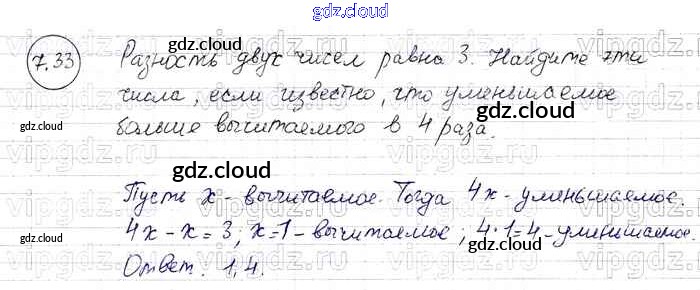 gdz.cloud
7.33 Разность двух чисел равна 3. Найдите эти
числа, если известно, что уменьшаемое
больше вычитаемого в 4 раза.
Пусть x - вычитаемое. Тогда 4x - уменьшаемое.
4x - x = 3; x = 1 - вычитаемое; 4·1=4 - уменьшаемое.
Ответ: 1,4.
gdz.cloud
gdz.cloud
gdz.cloud
gdz.cloud
gdz.cloud
gdz.cloud
gdz.cloud
gdz.cloud
gdz.cloud
gdz.cloud